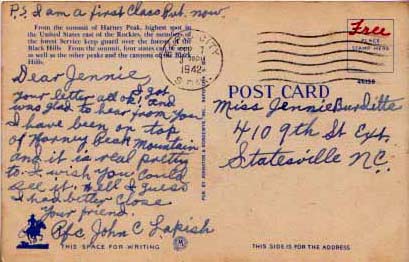 P.S. I am a first Class Pvt. now.
From the summit of Harney Peak, highest spot in
the United States east of the Rockies, the members of
the forest Service keep guard over the forests of the
Black Hills. From the summit, four states can be seen
as well as the other peaks and the canyons of the Black
Hills.
Dear Jennie,
I got
your letter all ok! and
was glad to hear from you
I have been on top
of Harney peak mountain
and it is real pretty
to. I wish you could
see it. Well I guess
I had better close
Your friend.
Pfc John C Lapish
THIS SPACE FOR WRITING
CITY
7
1942
S. DAK.
Free
PLACE
STAMP HERE
POST CARD
Miss Jennie Burditte
410 9th St Ext.
Statesville N.C.
THIS SIDE IS FOR THE ADDRESS